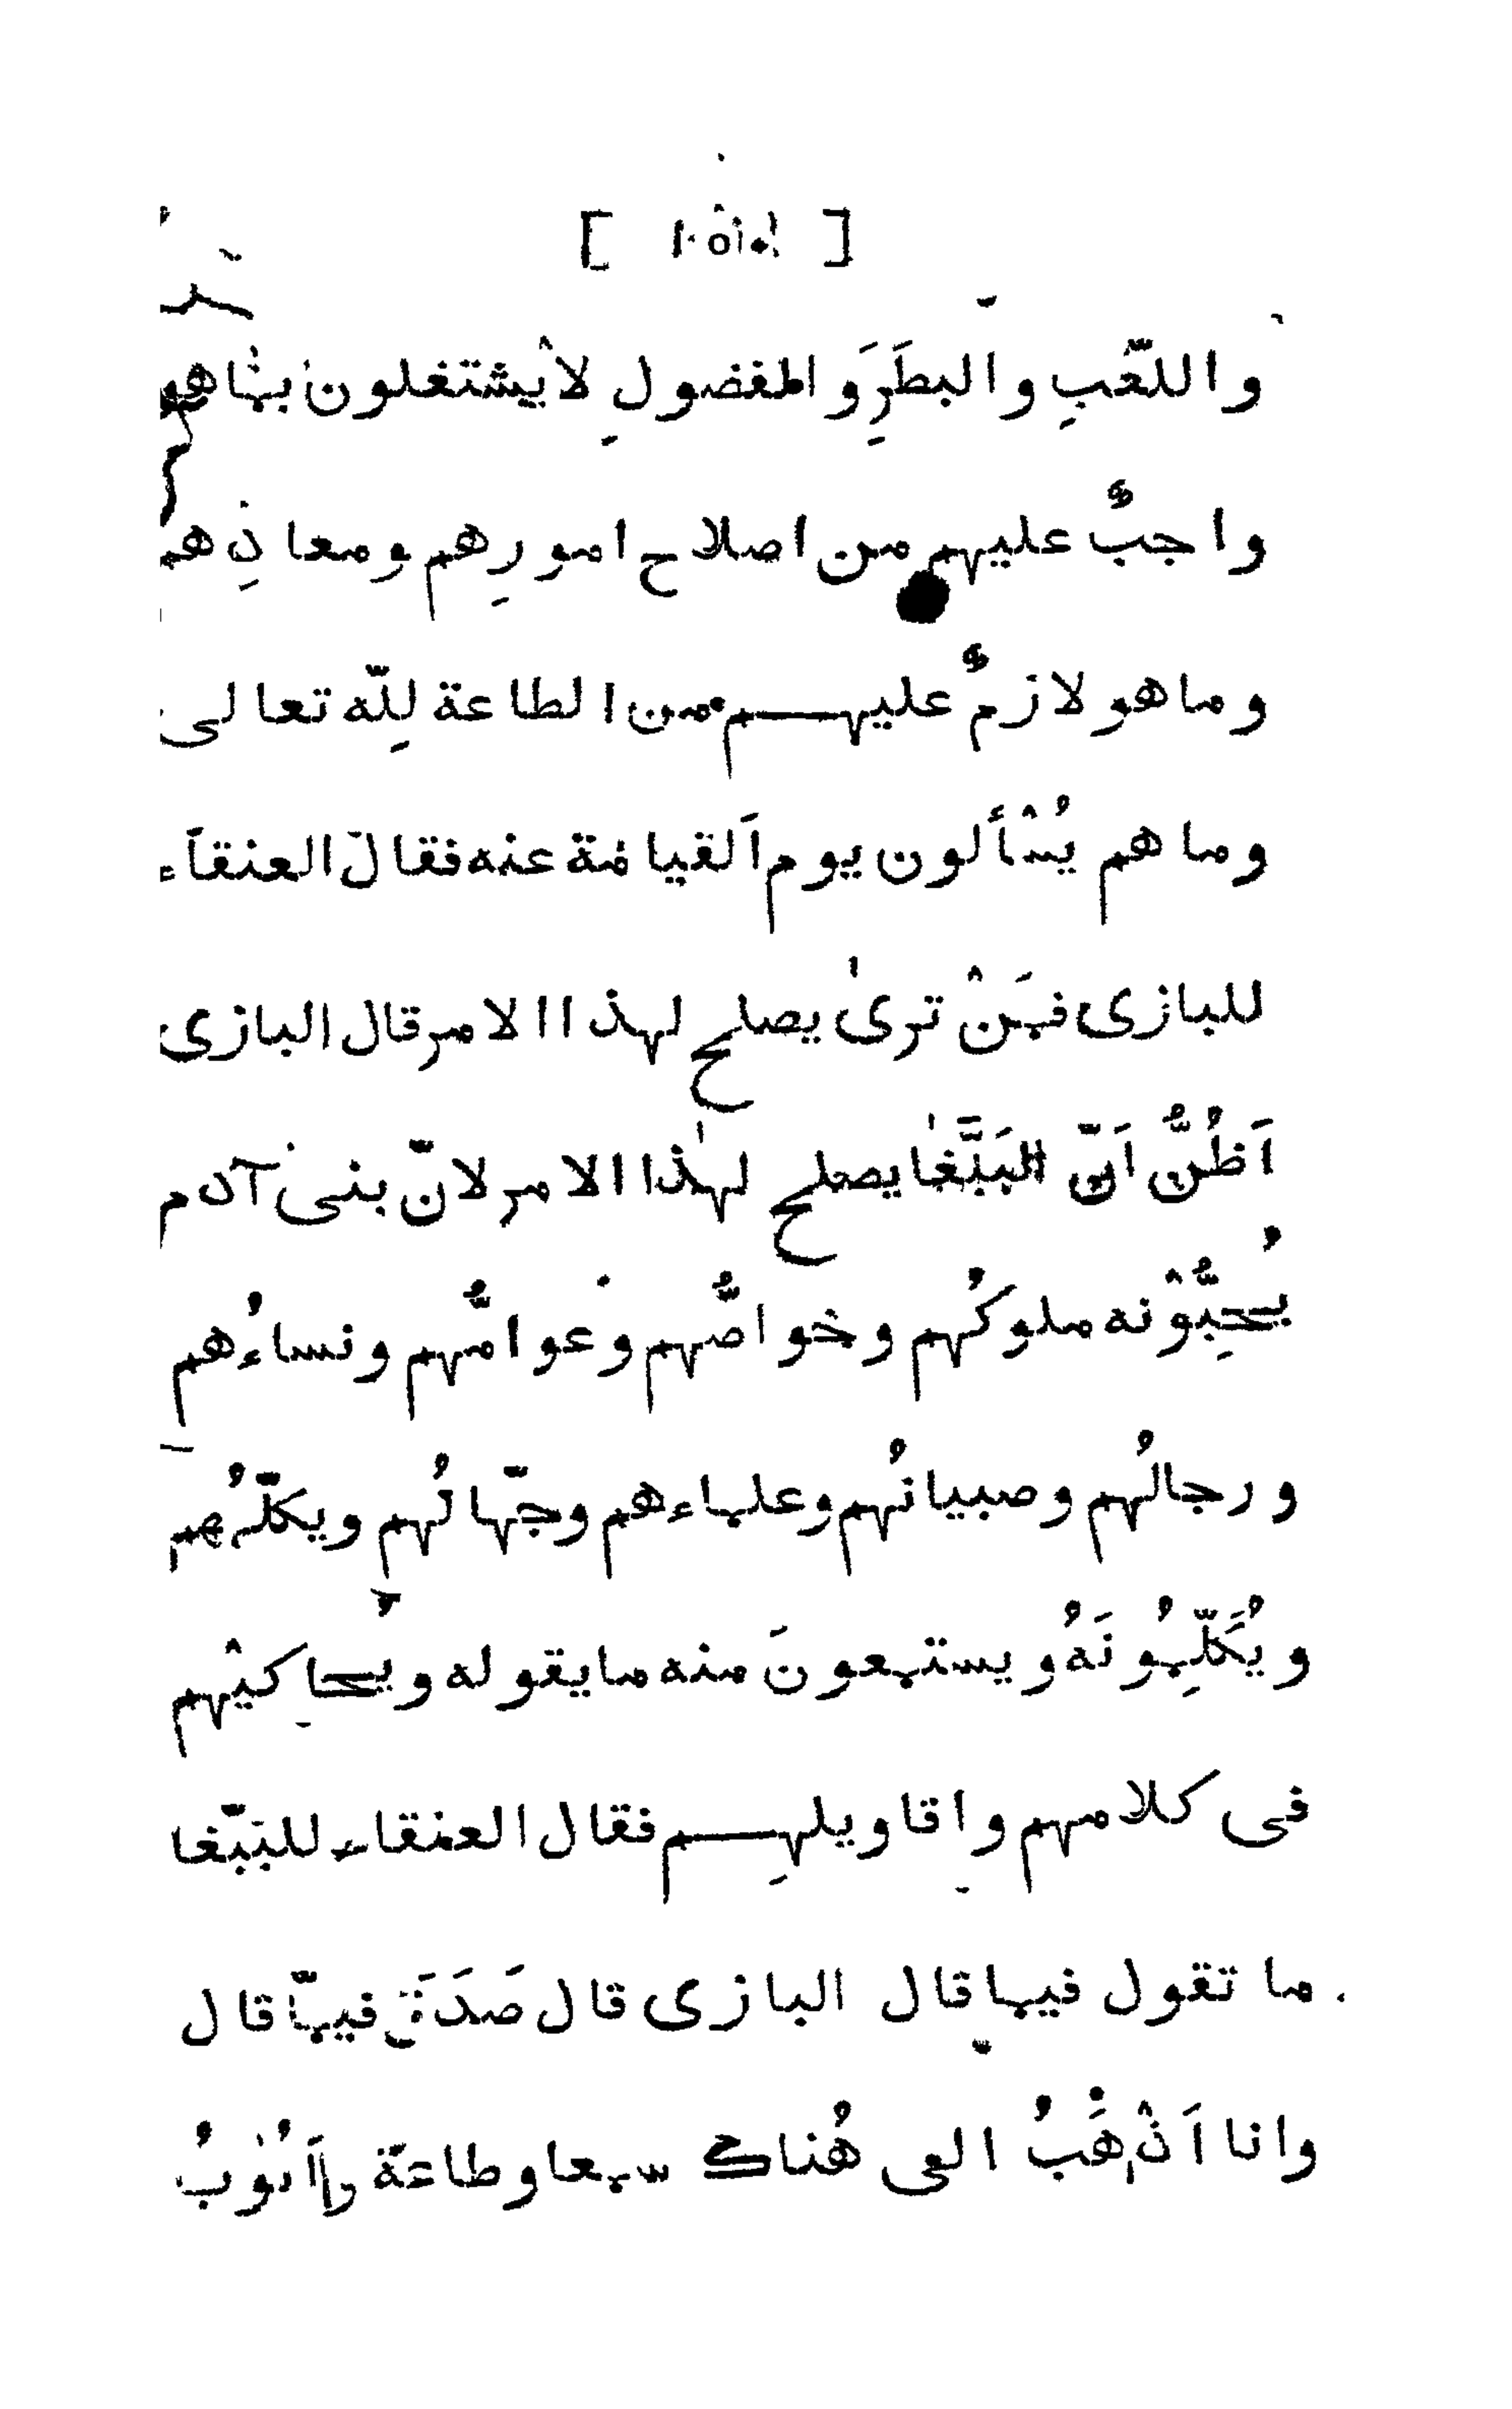 واللّعبِ والبطَرِ وَالفضولِ لا يشتغلون بما هو
واجبٌ عليهم من اصلاح امورِهم ومعادِهم
وما هو لازمٌ عليهم من الطاعة لِلّه تعالى
وما هم يُسْألون يوم اَلقيامة عنه فقال العنقآء
للبازى فمَنْ ترىٰ يصلح لهذا الامر قال البازى
اَظُنُّ اَنّ البَبَّغا يصلح لهٰذا الامر لانّ بنى آدم
يُحِبُّوْنه ملوكُهم وخواصُّهم وعوامُّهم ونساءُهم
ورجالُهم وصبيانُهم وعلماءهم وجّهالُهم ويكلّمُهم
ويُكَلّمُونَهُ ويستمعونَ منه ما يقوله ويُحاكيْهم
فى كلامهم واقاويلهِم فقال العنقاء للببّغا
ما تقول فيما قال البازى قال صَدَقَ فيما قال
وانا اَذْهَبُ الى هُناك سمعا وطاعة واَنُوْبُ